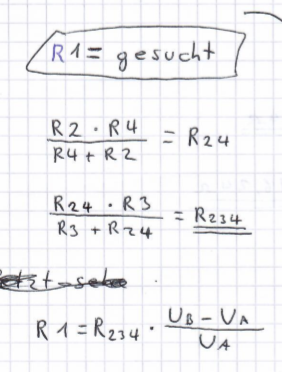 R1 = gesucht
R2 · R4 / R4 + R2 = R24
R24 · R3 / R3 + R24 = R234
R1 = R234 · UB - UA / UA